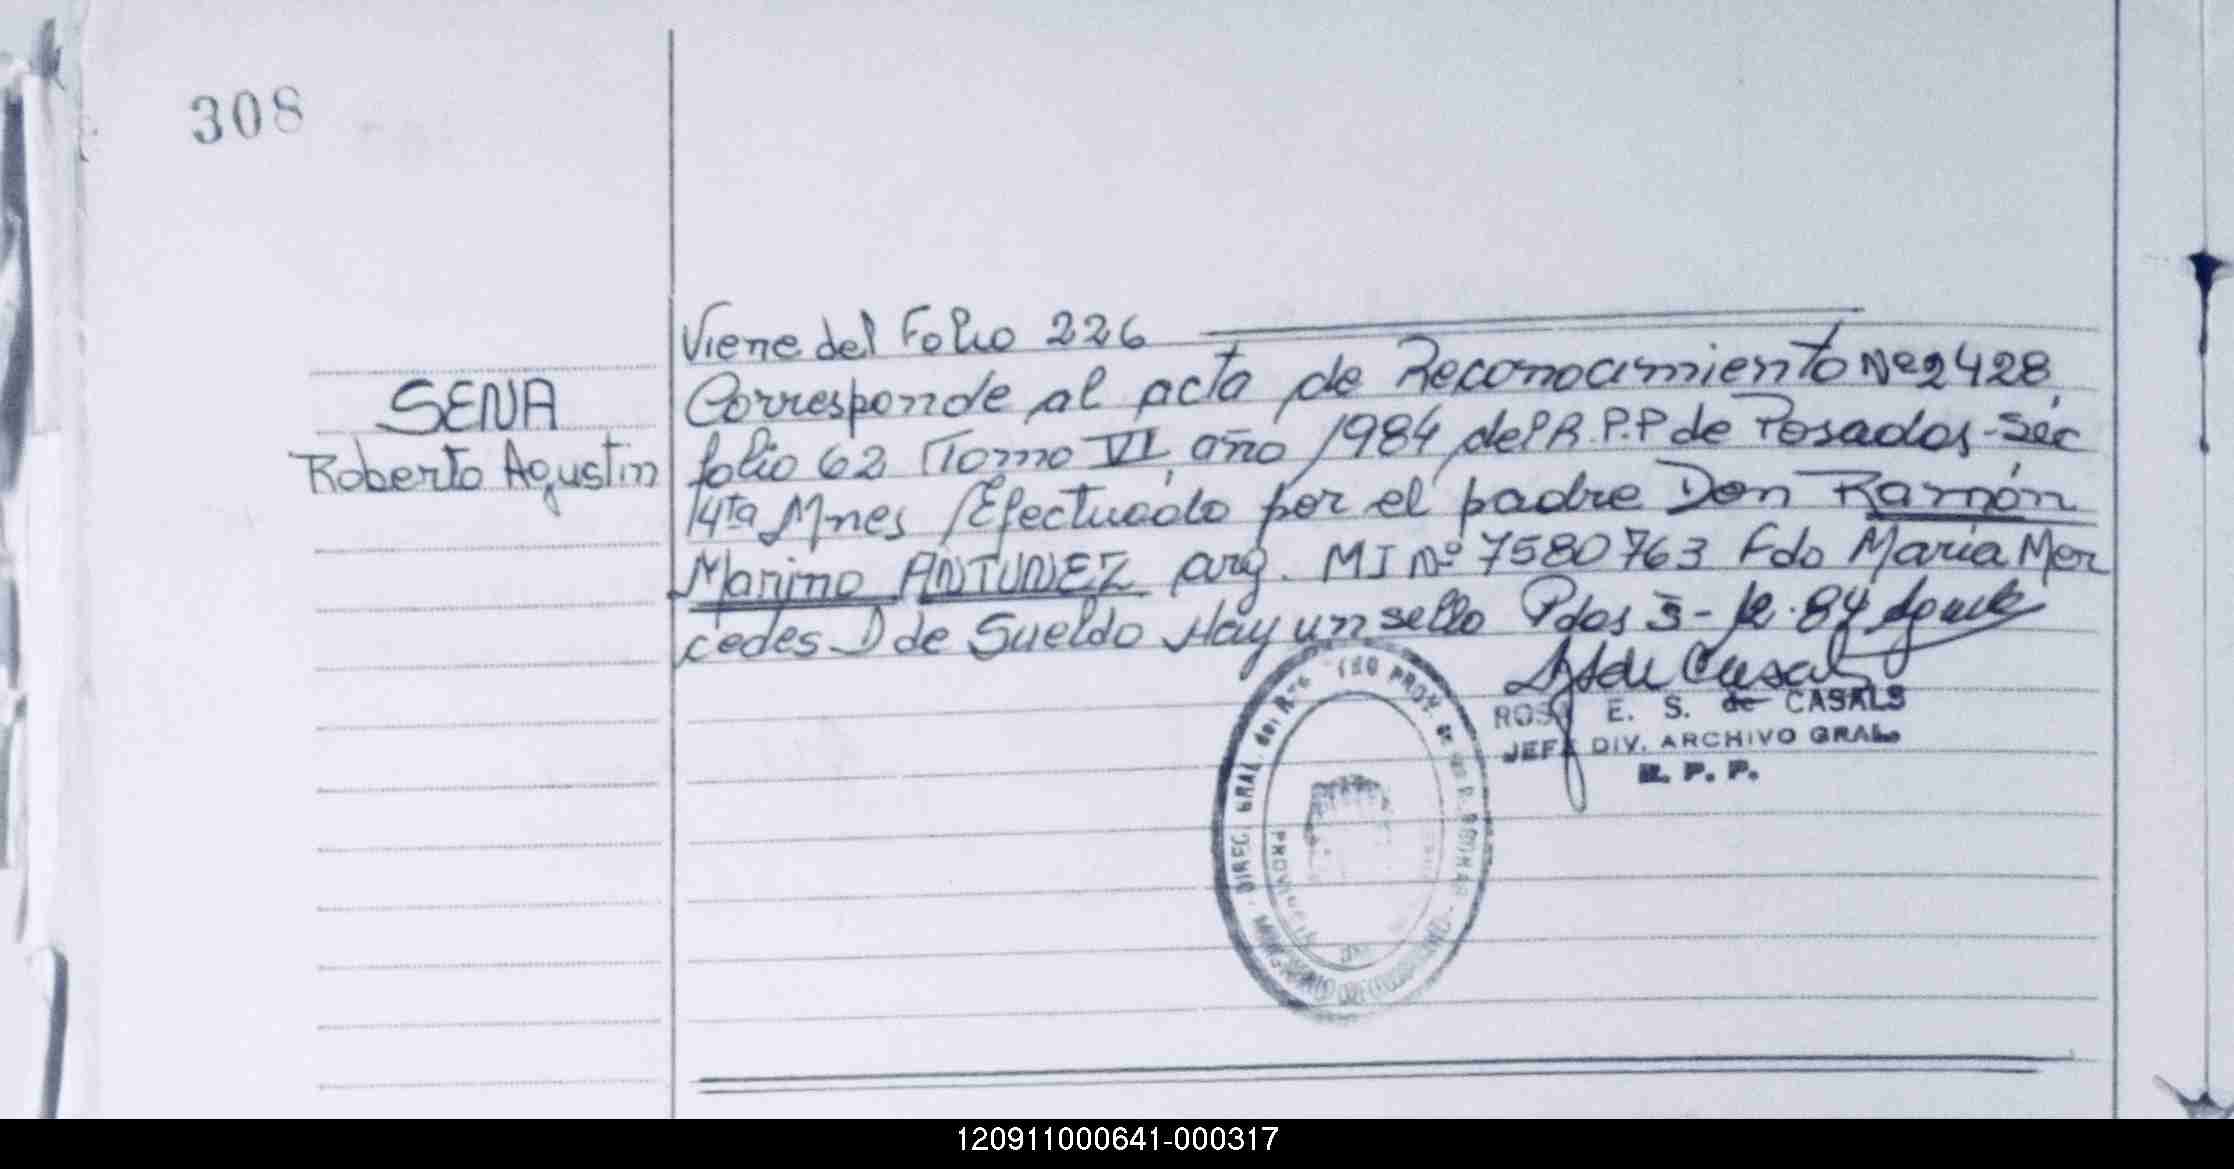 308
Viene del Folio 226
SENA
Roberto Agustin
Corresponde al acta de Reconocimiento Nº 2428
folio 62 Tomo VI, año 1984, del R.P.P de Posadas - Sec
4ta Mnes /Efectuado por el padre Don Ramón
Marino ANTUNEZ arg. MI Nº 7580763 Fdo María Mer
cedes D de Sueldo Hay un sello Pdas 3-12-84
de Casals
ROSA E. S. de CASALS
JEFA DIV. ARCHIVO GRAL.
R. P. P.
DIREC. GRAL. del
PROV. de las
PROVINCIA
120911000641-000317